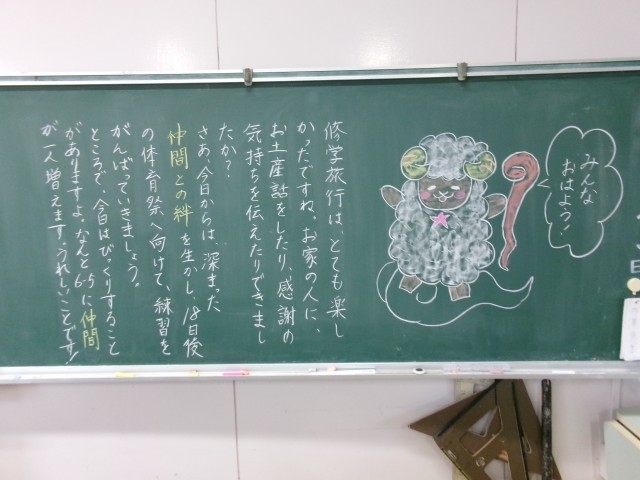 みんな
おはよう!
修学旅行は、とても楽し
かったですね。お家の人に、
お土産話をしたり、感謝の
気持ちを伝えたりできまし
たか?
さあ、今日からは、深まった
仲間との絆を生かし、18日後
の体育祭へ向けて、練習を
がんばっていきましょう。
ところで、今日はびっくりすること
がありますよ。なんと6-5に仲間
が一人増えます。うれしいことです!